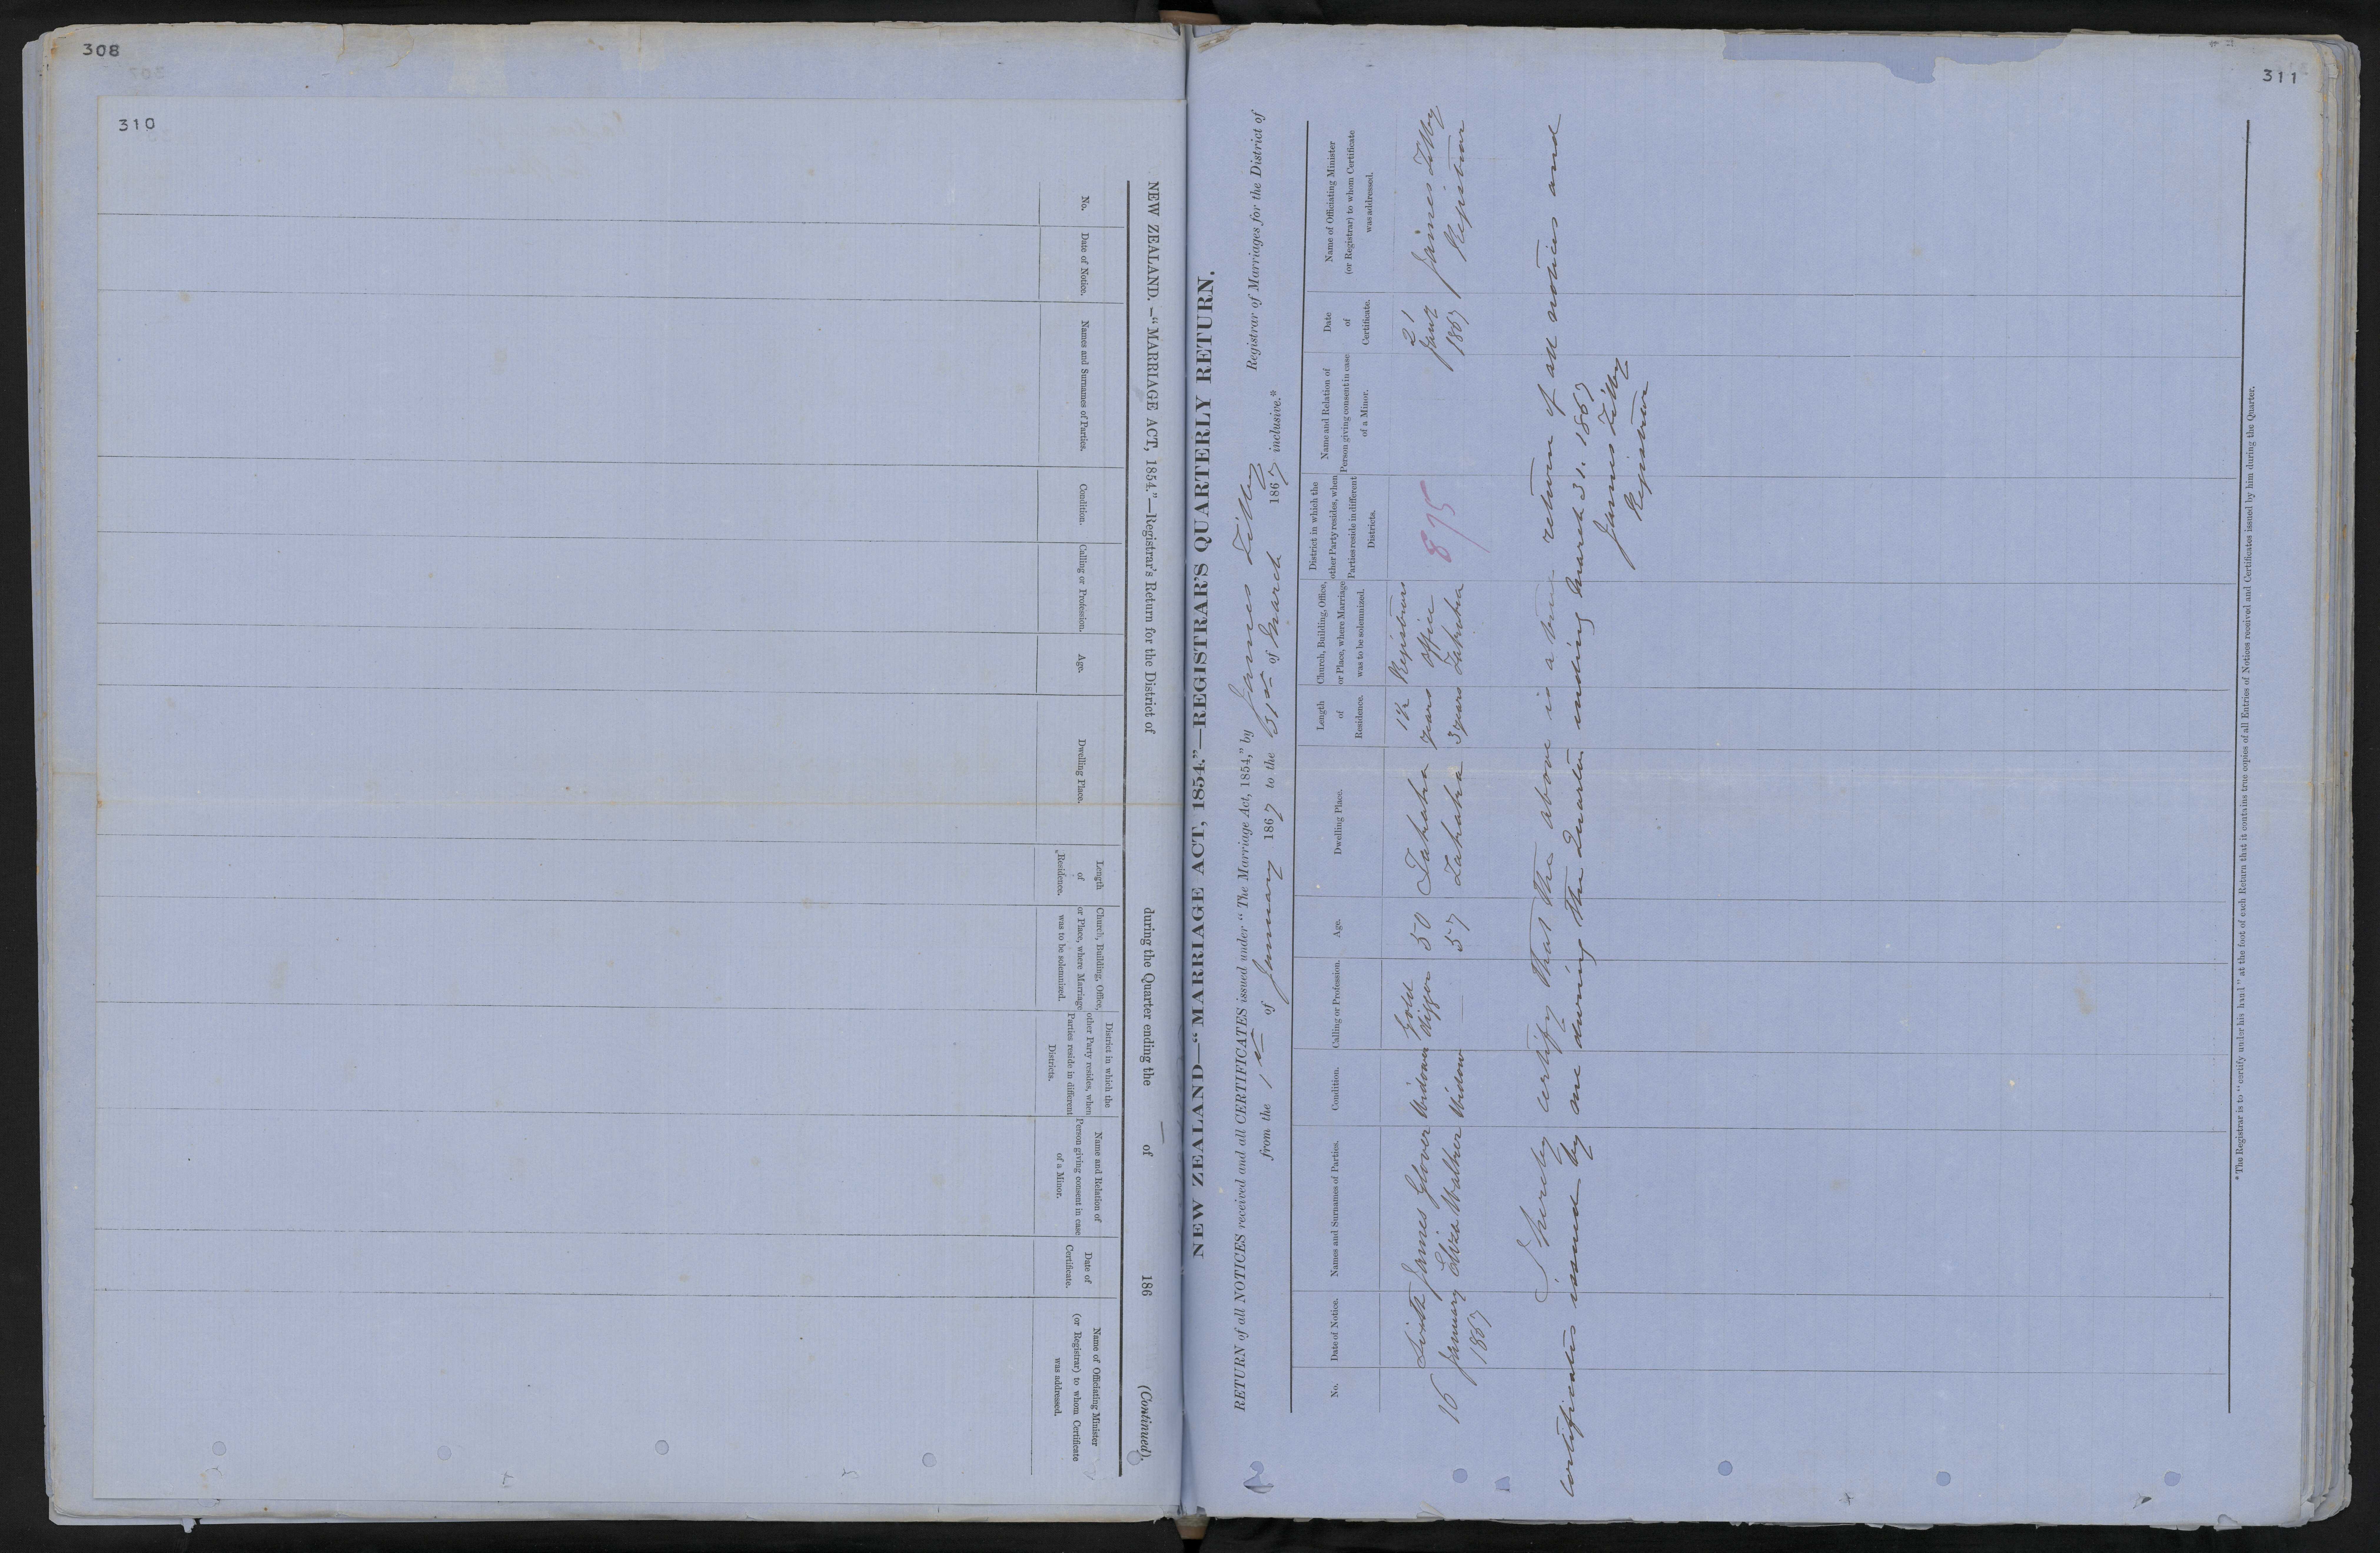 308
310
NEW ZEALAND.—"MARRIAGE ACT, 1854."—Registrar's Return for the District of during the Quarter ending the of 186 (Continued).
No.
Date of Notice.
Names and Surnames of Parties.
Condition.
Calling or Profession.
Age.
Dwelling Place.
Length
of
Residence.
Church, Building, Office,
or Place, where Marriage
was to be solemnized.
District in which the
other Party resides, when
Parties reside in different
Districts.
Name and Relation of
Person giving consent in case
of a Minor.
Date of
Certificate.
Name of Officiating Minister
(or Registrar) to whom Certificate
was addressed.
311
NEW ZEALAND—"MARRIAGE ACT, 1854."—REGISTRAR'S QUARTERLY RETURN.
RETURN of all NOTICES received and all CERTIFICATES issued under "The Marriage Act, 1854," by James Registrar of Marriages for the District of
from the 1st of January 1867 to the 31st of March 1867 inclusive.*
No.
Date of Notice.
Names and Surnames of Parties.
Condition.
Calling or Profession.
Age.
Dwelling Place.
Length
of
Residence.
Church, Building, Office,
or Place, where Marriage
was to be solemnized.
District in which the
other Party resides, when
Parties reside in different
Districts.
Name and Relation of
Person giving consent in case
of a Minor.
Date
of
Certificate.
Name of Officiating Minister
(or Registrar) to whom Certificate
was addressed.
16
January
1867
James Glover
Eliza Walther
Widower
Widow
Gold
digger
50
57
Takaka
Takaka
1½
years
3 years
Registrars
office
Takaka
875
21
Jany
1867
James
Registrar
I hereby certify that the above is a true return of all notices and
certificates issued by me during the Quarter ending March 31. 1867
James
Registrar
*The Registrar is to "certify under his hand" at the foot of each Return that it contains true copies of all Entries of Notices received and Certificates issued by him during the Quarter.